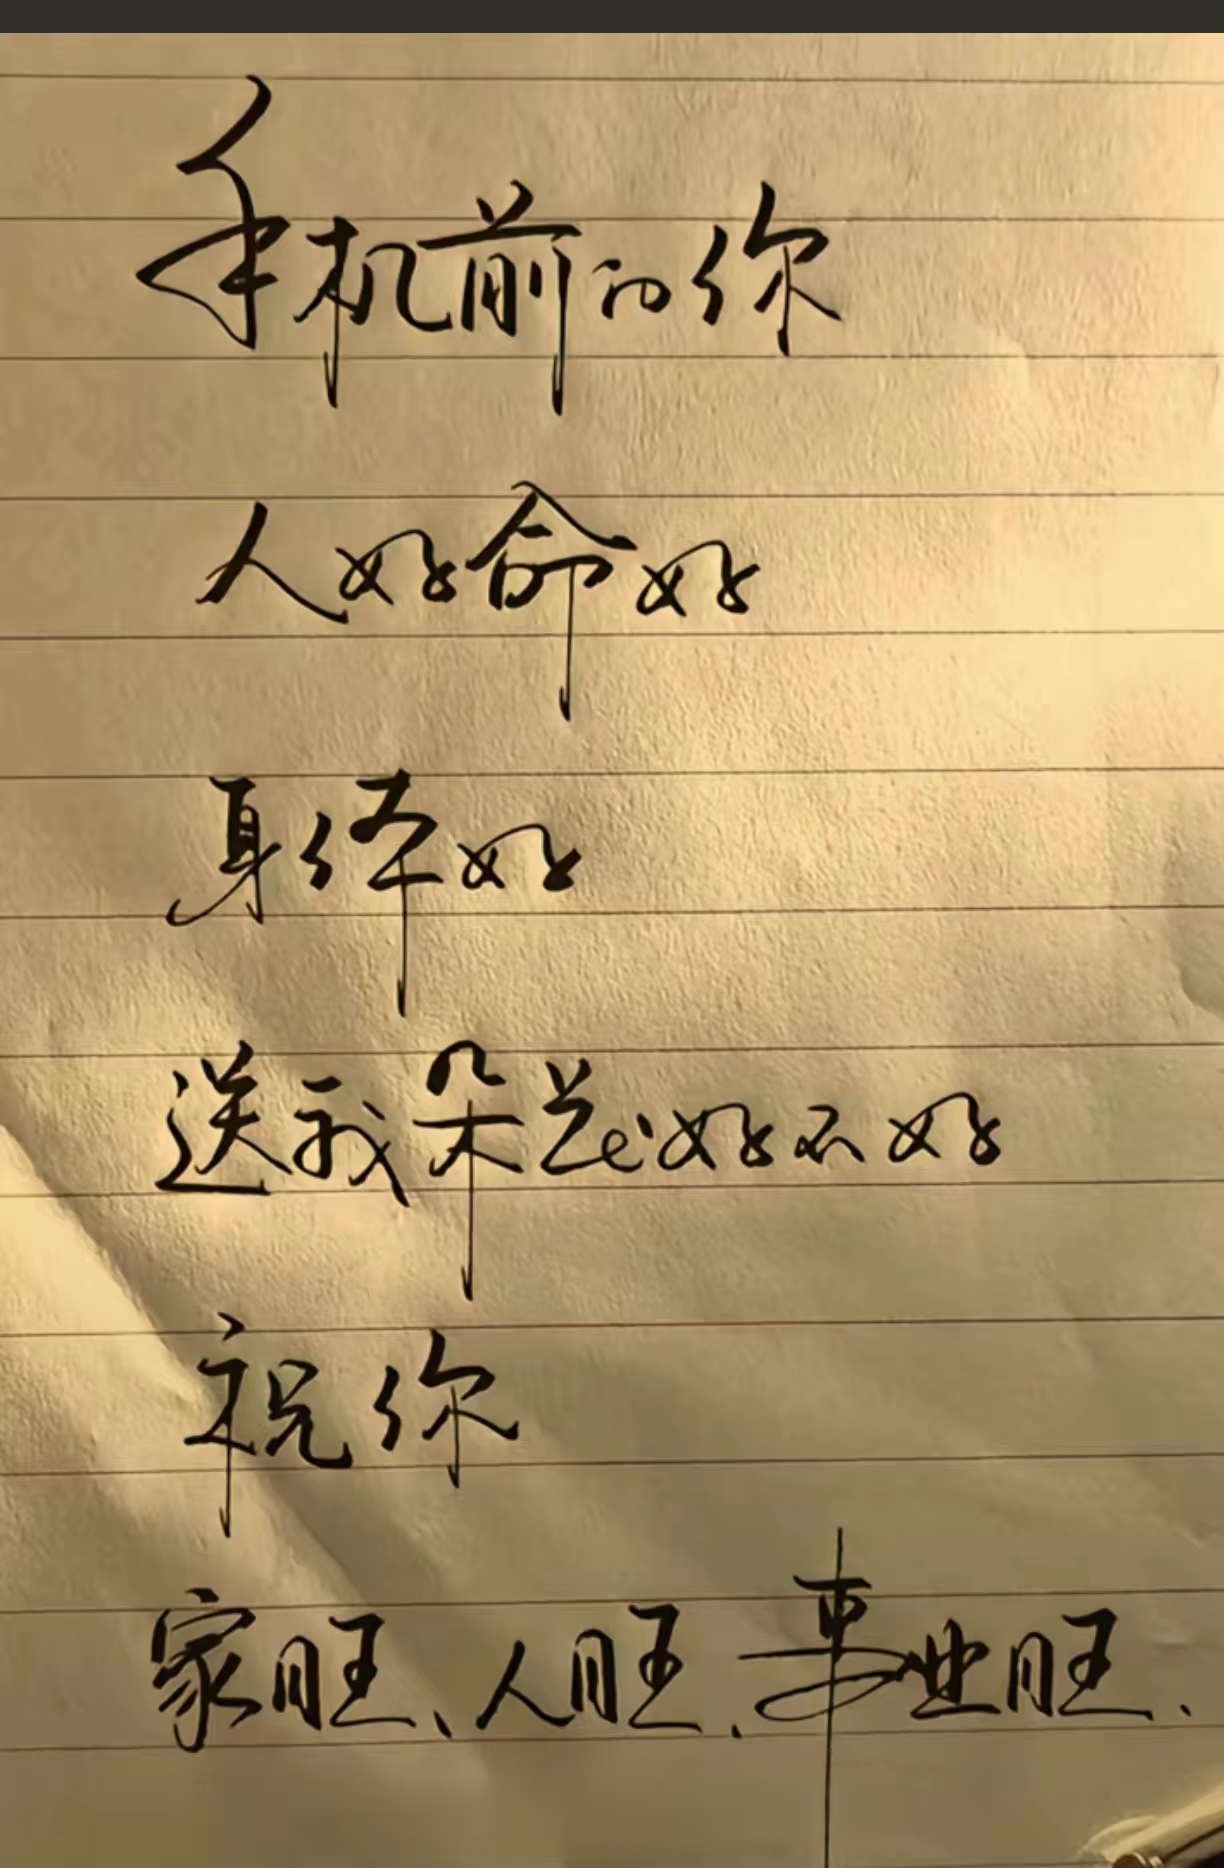 手机前的你
人好命好
身体好
送我朵花好不好
祝你
家旺、人旺、事业旺、